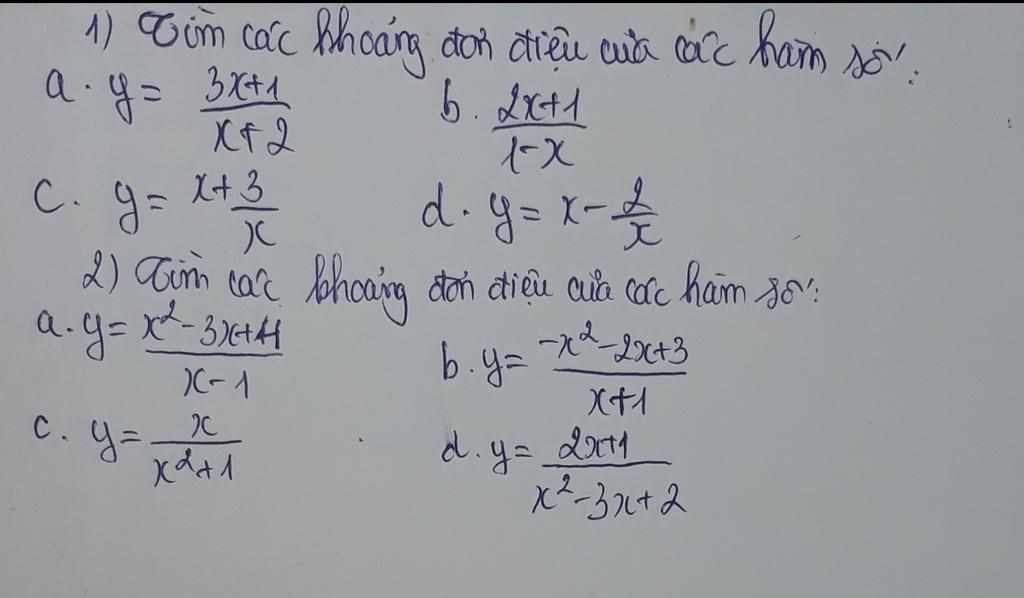 1) Tìm các khoảng đơn điệu của các hàm số:
a. y = (3x+1)/(x+2) b. (2x+1)/(1-x)
c. y = x + 3/x d. y = x - 2/x
2) Tìm các khoảng đơn điệu của các hàm số:
a. y = (x² - 3x + 4)/(x - 1) b. y = (-x² - 2x + 3)/(x+1)
c. y = x/(x² + 1) d. y = (2x+1)/(x² - 3x + 2)